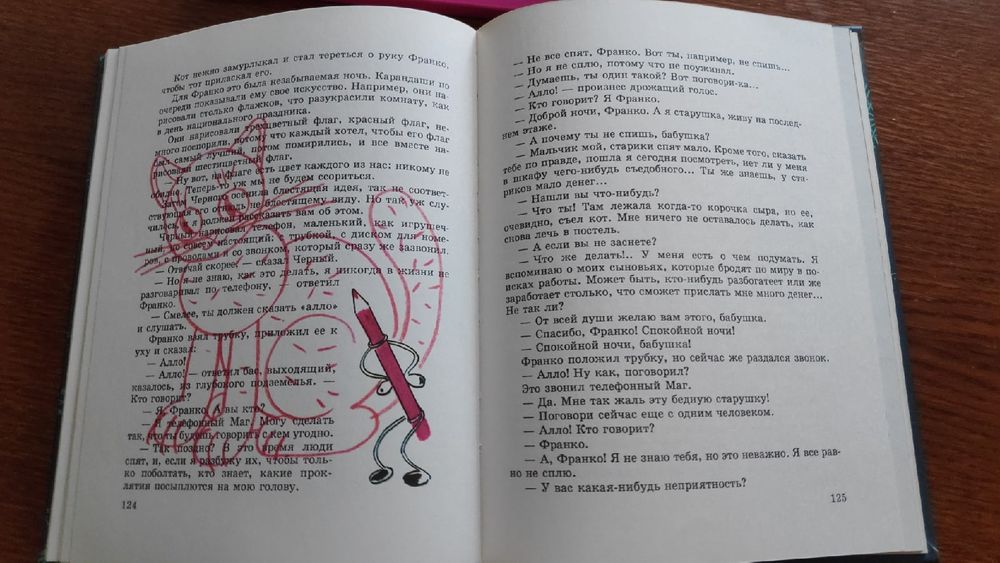 Кот нежно замурлыкал и стал тереться о руку Франко,
чтобы тот приласкал его.
Для Франко это была незабываемая ночь. Карандаши по
очереди показывали ему свое искусство. Например, они на-
рисовали столько флажков, что разукрасили комнату, как
в день национального праздника.
Они нарисовали трехцветный флаг, красный флаг, не-
много поспорили, потому что каждый хотел, чтобы его флаг
был самый лучший, потом помирились, и все вместе на-
рисовали шестицветный флаг.
— Ну вот, на флаге есть цвет каждого из нас: никому не
обидно. Теперь-то уж мы не будем ссориться.
Затем Черного осенила блестящая идея, так не соответ-
ствующая его отнюдь не блестящему виду. Но так уж слу-
чилось, и я должен рассказать вам об этом.
Черный нарисовал телефон, маленький, как игрушеч-
ный, но совсем настоящий: с трубкой, с диском для номе-
ров, с проводами и со звонком, который сразу же зазвонил.
— Отвечай скорее! — сказал Черный.
— Но я не знаю, как это делать, я никогда в жизни не
разговаривал по телефону, — ответил
Франко.
— Смелее, ты должен сказать «алло»
и слушать.
Франко взял трубку, приложил ее к
уху и сказал:
— Алло!
— Алло! — ответил бас, выходящий,
казалось, из глубокого подземелья. —
Кто говорит?
— Я, Франко. А вы кто?
— Я телефонный Маг. Могу сделать
так, что ты будешь говорить с кем угодно.
— Так поздно? В это время люди
спят, и, если я разбужу их, чтобы толь-
ко поболтать, кто знает, какие прок-
лятия посыплются на мою голову.
124
— Не все спят, Франко. Вот ты, например, не спишь...
— Но я не сплю, потому что не поужинал.
— Думаешь, ты один такой? Вот поговори-ка...
— Алло! — произнес дрожащий голос.
— Кто говорит? Я Франко.
— Доброй ночи, Франко. А я старушка, живу на послед-
нем этаже.
— А почему ты не спишь, бабушка?
— Мальчик мой, старики спят мало. Кроме того, сказать
тебе по правде, пошла я сегодня посмотреть, нет ли у меня
в шкафу чего-нибудь съедобного... Ты же знаешь, у ста-
риков мало денег...
— Нашли вы что-нибудь?
— Что ты! Там лежала когда-то корочка сыра, но ее,
очевидно, съел кот. Мне ничего не оставалось делать, как
снова лечь в постель.
— А если вы не заснете?
— Что же делать!.. У меня есть о чем подумать. Я
вспоминаю о моих сыновьях, которые бродят по миру в по-
исках работы. Может быть, кто-нибудь разбогатеет или же
заработает столько, что сможет прислать мне много денег...
Не так ли?
— От всей души желаю вам этого, бабушка.
— Спасибо, Франко! Спокойной ночи!
— Спокойной ночи, бабушка!
Франко положил трубку, но сейчас же раздался звонок.
— Алло! Ну как, поговорил?
Это звонил телефонный Маг.
— Да. Мне так жаль эту бедную старушку!
— Поговори сейчас еще с одним человеком.
— Алло! Кто говорит?
— Франко.
— А, Франко! Я не знаю тебя, но это неважно. Я все рав-
но не сплю.
— У вас какая-нибудь неприятность?
125